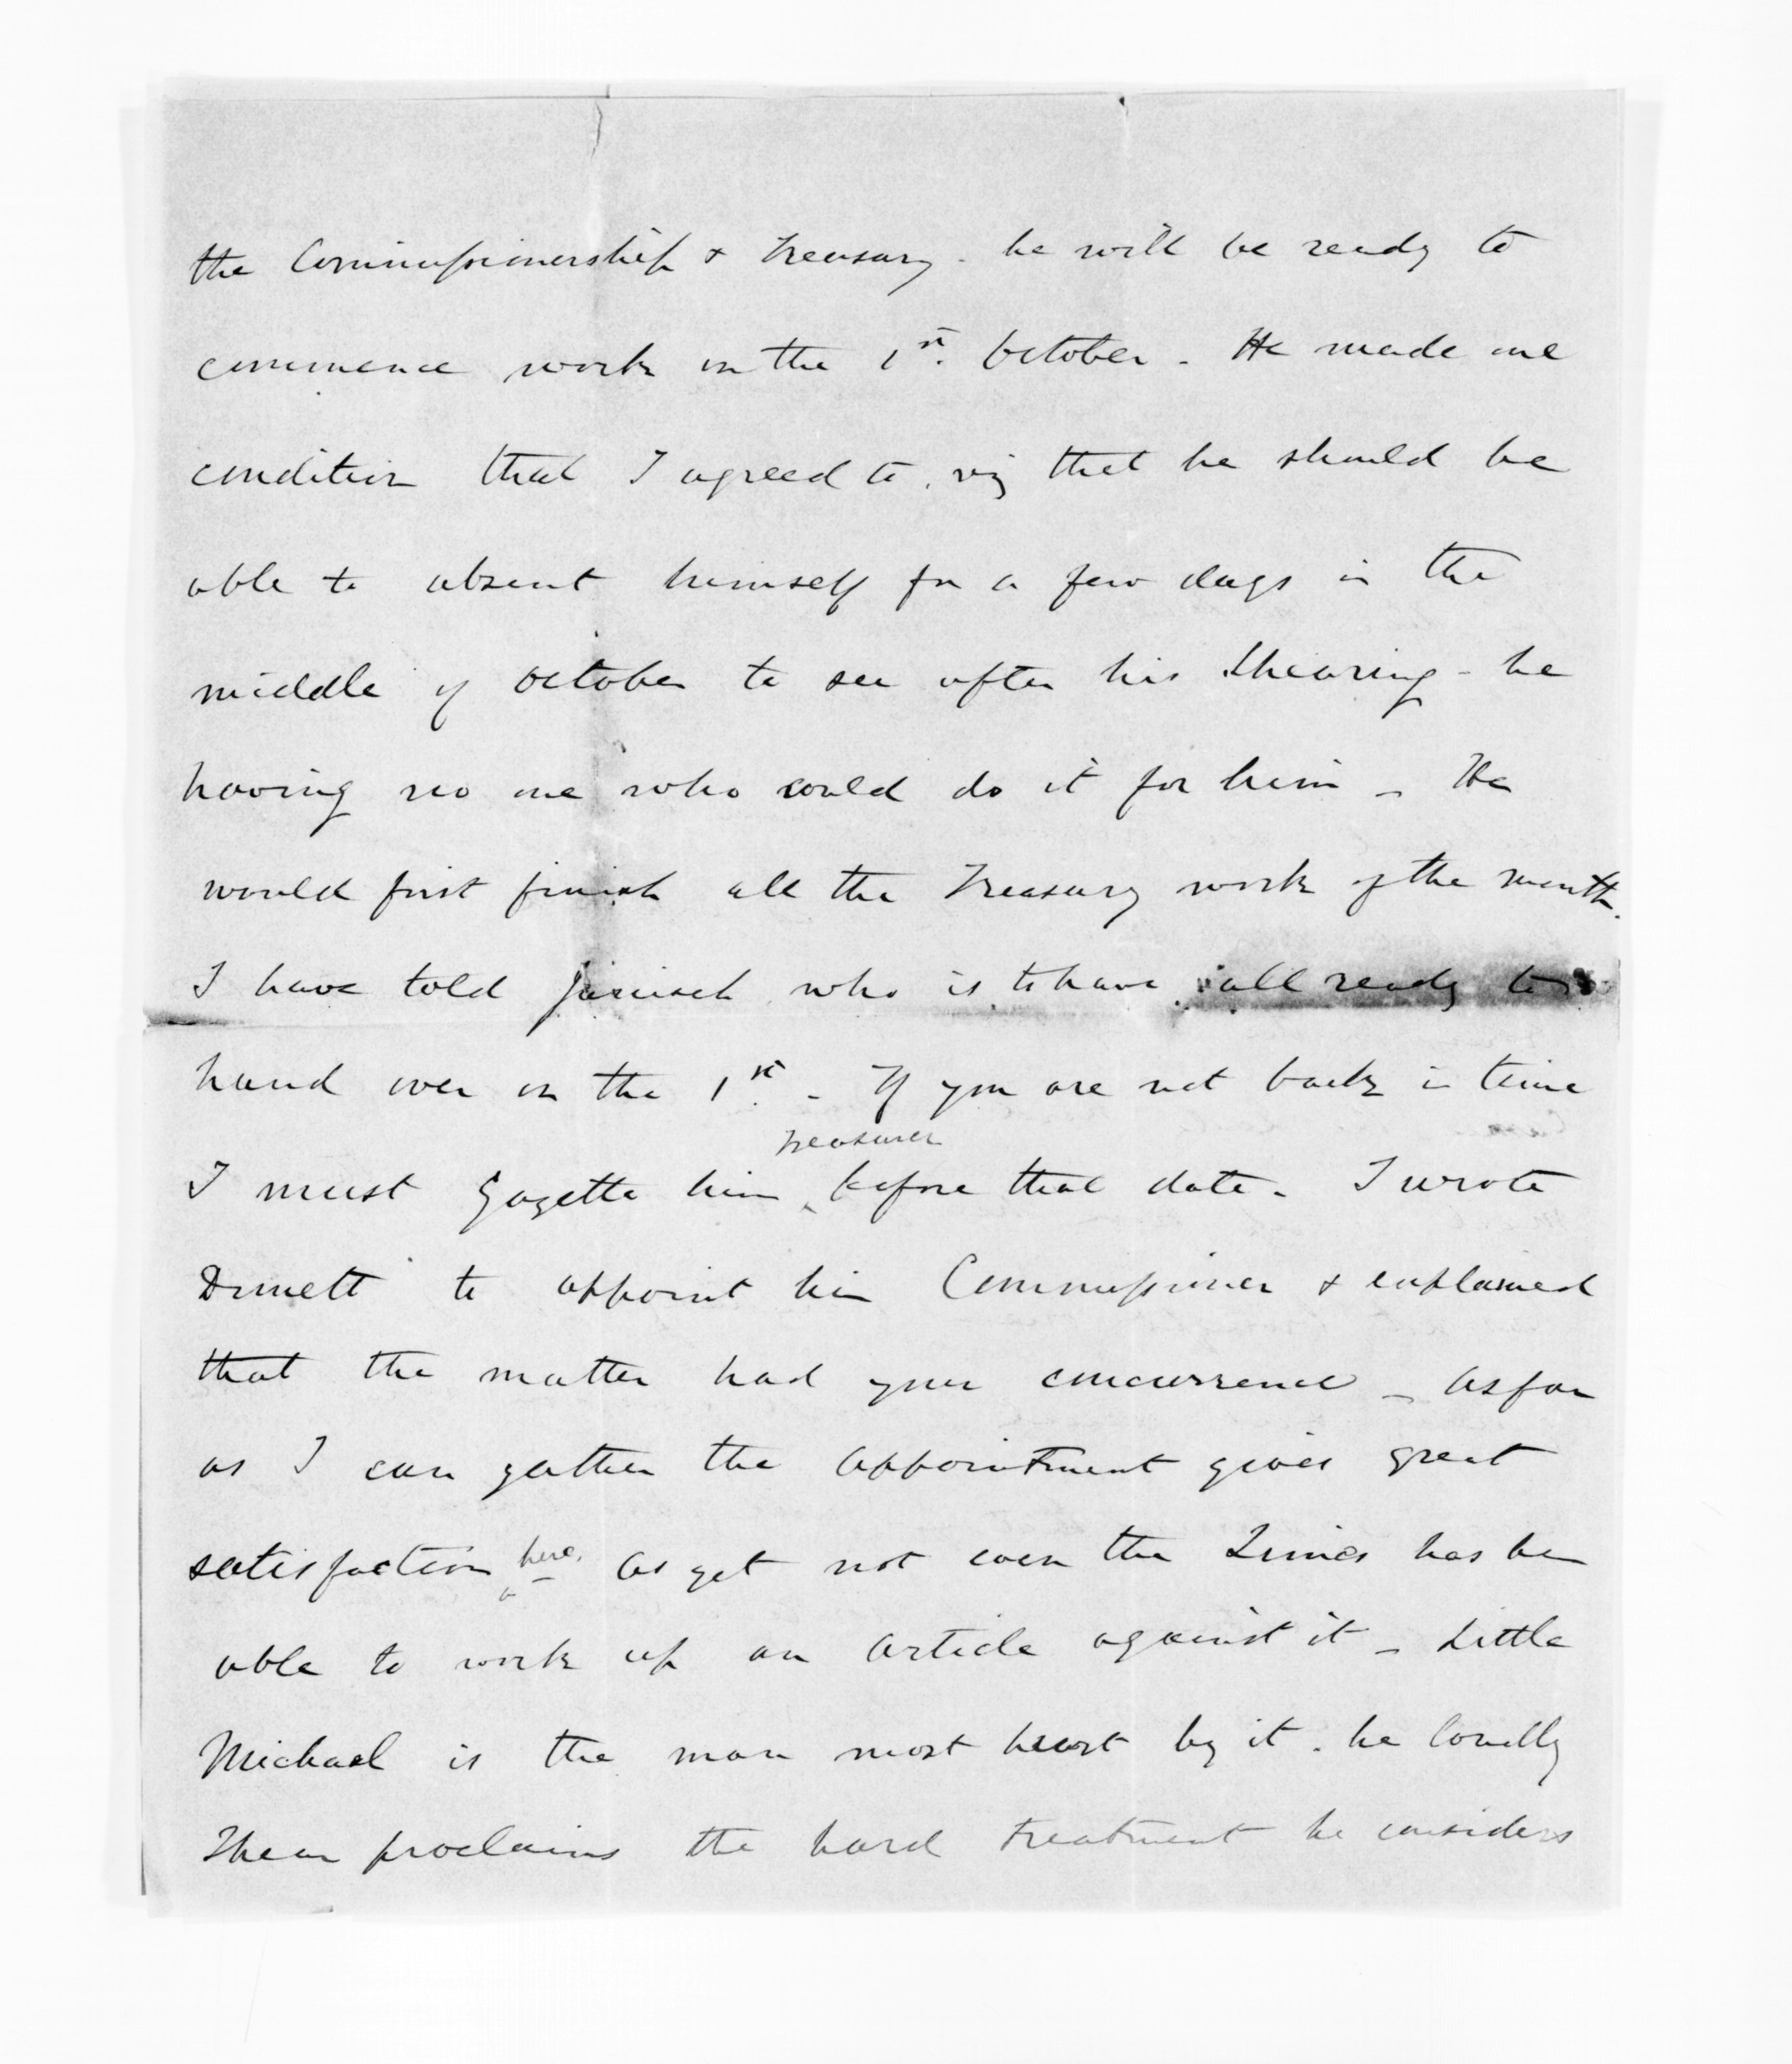 the Commissionership & Treasury - he will be ready to
commence work on the 1st. October - He made one
condition that I agreed to, viz that he should be
able to absent himself for a few days in the
middle of October to see after his Shearing - he
having no one who could do it for him - He
would first finish all the Treasury work of the month.
I have told who is to have all ready to
hand over on the 1st. - If you are not back in time
Treasurer
I must Gazette him before that date - I wrote
Domett to appoint him Commissioner & explained
that the matter had your concurrence - As far
as I can gather the appointment gives great
satisfaction here. As yet not even the Times has been
able to work up an article against it - Little
Michael is the man most hurt by it. he loudly
proclaims the hard treatment he considers